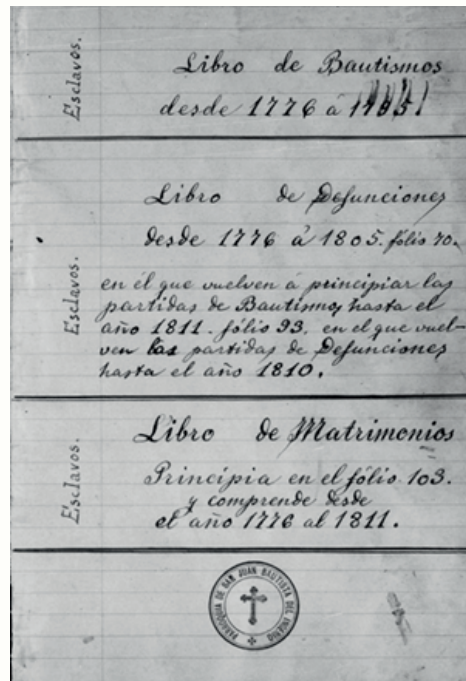 Esclavos.
Libro de Bautismos
desde 1776 á
Libro de Defunciones
desde 1776 á 1805. fólio 70.
Esclavos.
en el que vuelven á principiar las
partidas de Bautismos hasta el
año 1811. fólio 93. en el que vuel-
ven las partidas de Defunciones
hasta el año 1810.
Libro de Matrimonios
Esclavos.
Principia en el fólio 103.
y comprende desde
el año 1776 al 1811.
PARROQUIA DE SAN JUAN BAUTISTA DEL INGENIO